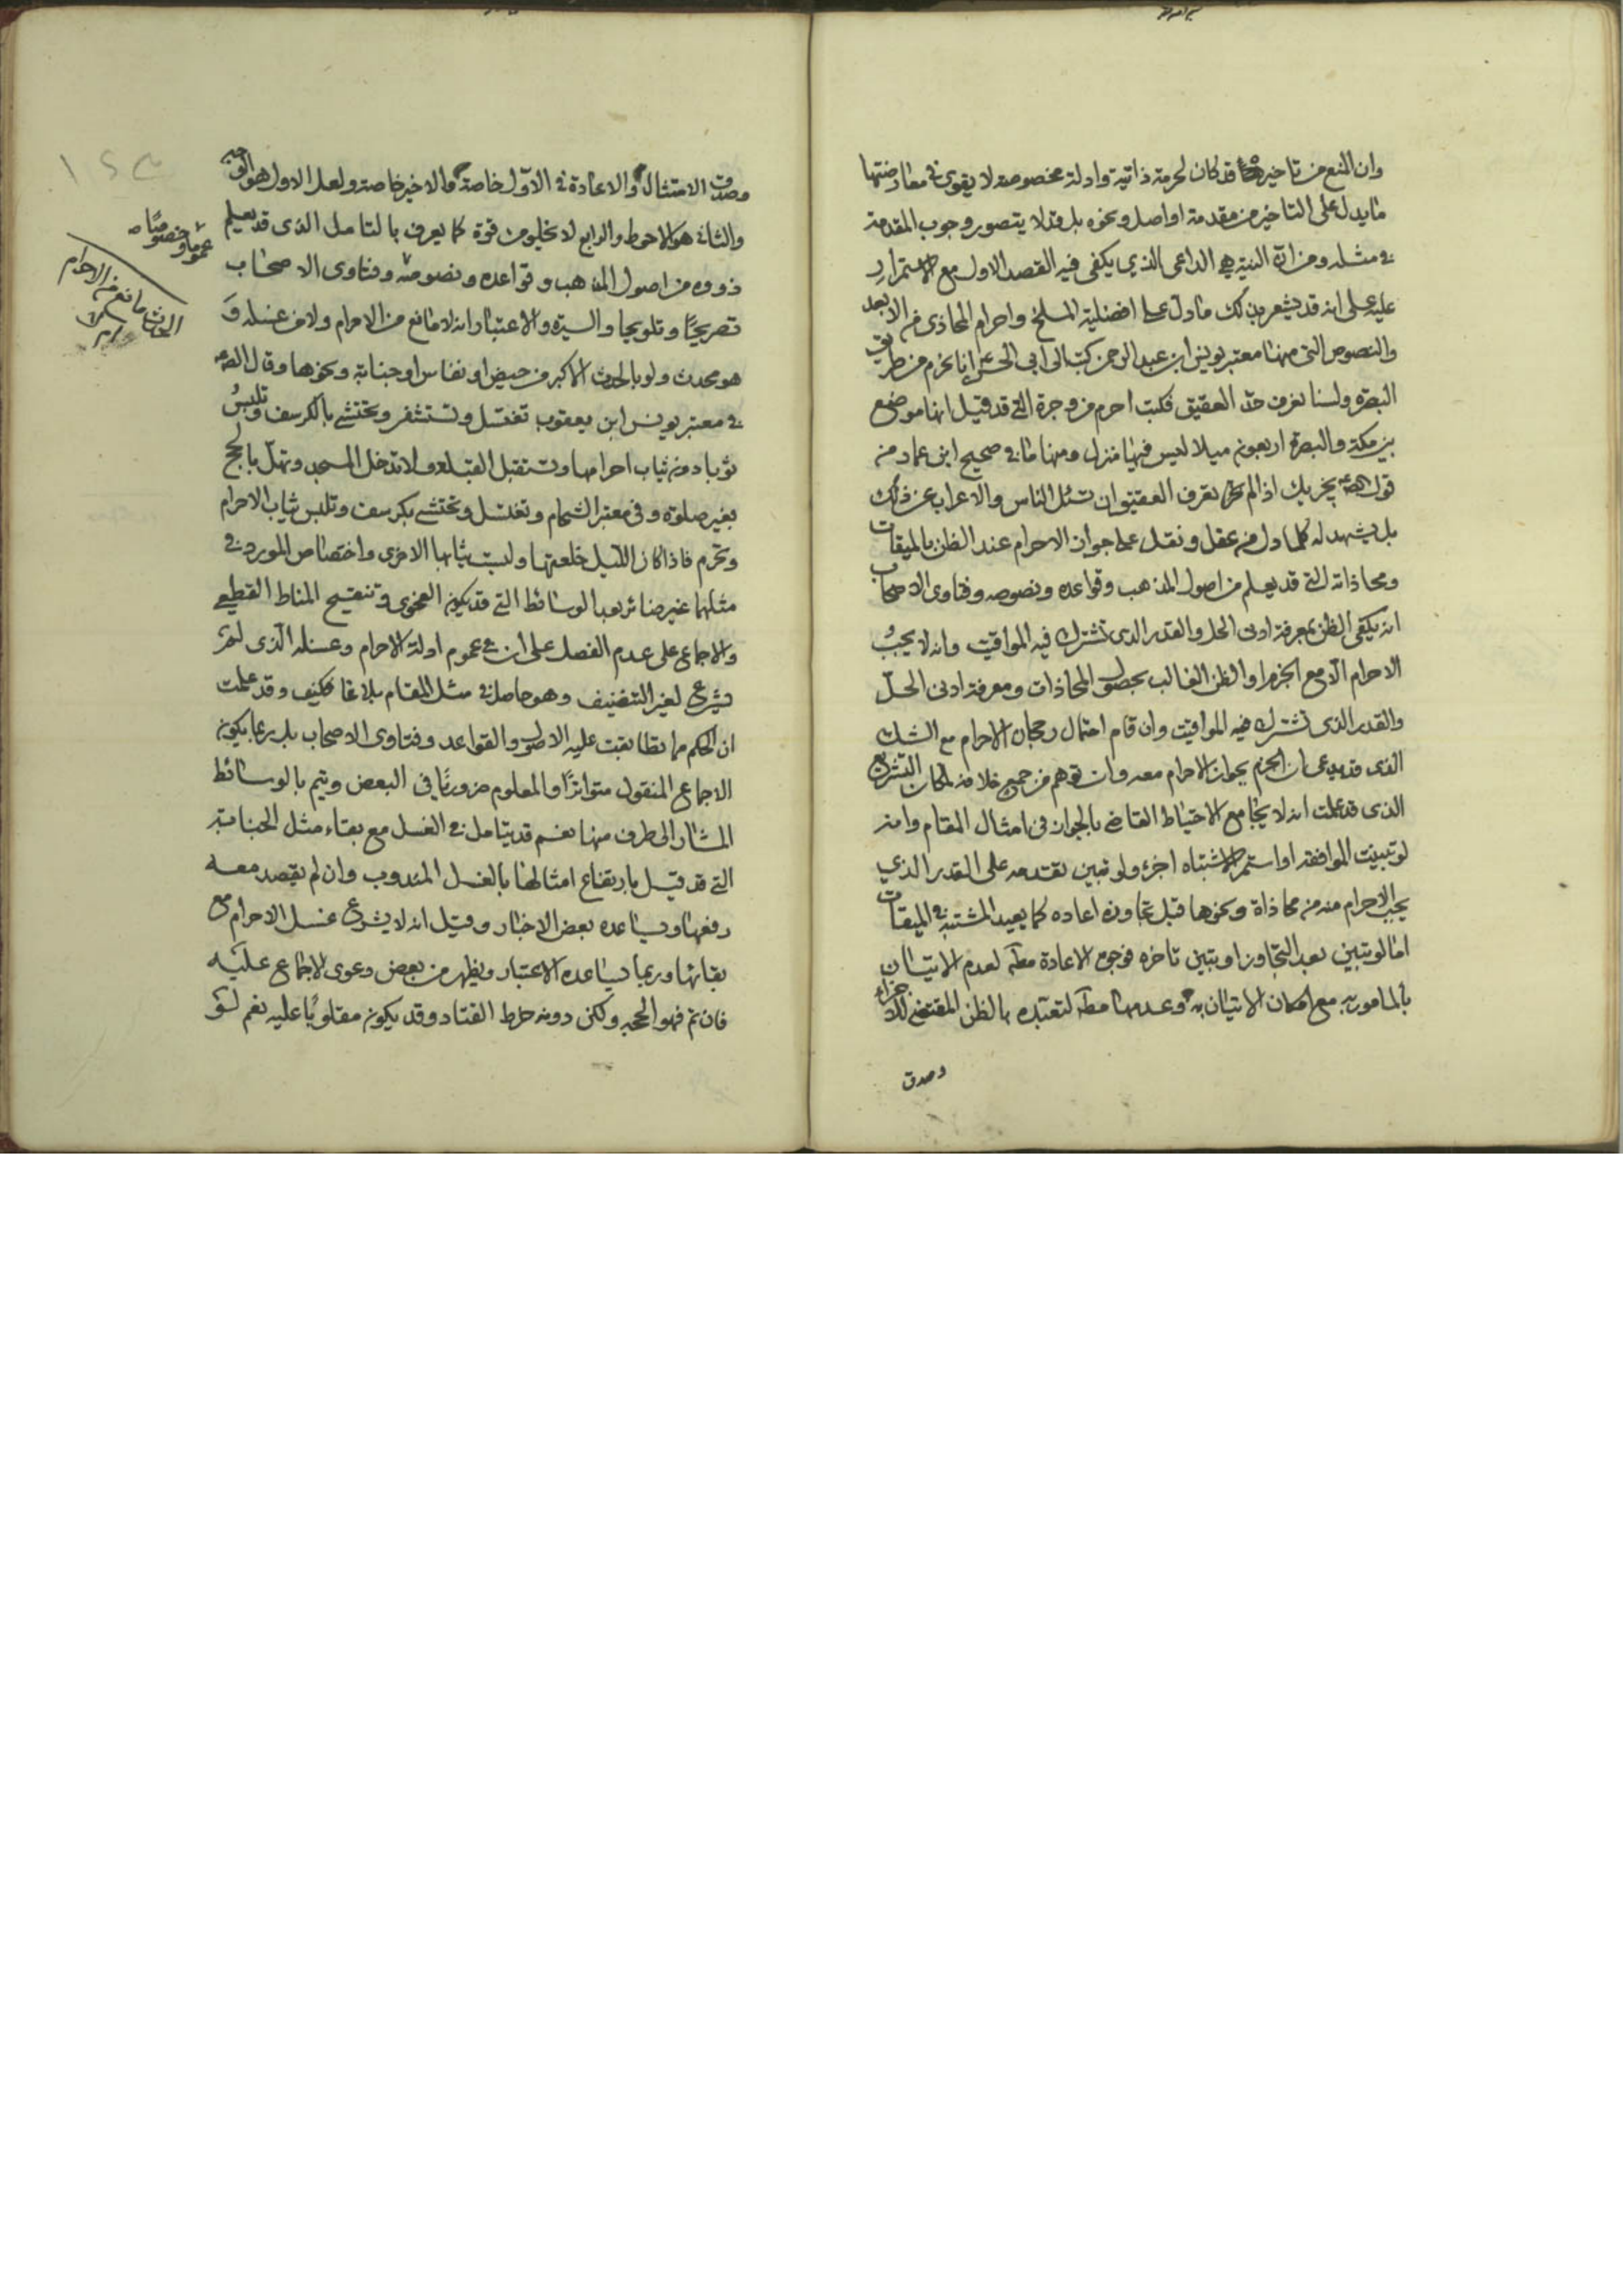 وان المنع من تاخيرها قد كان لحرمة ذاتية وادلة مخصوصة لا يقوى في معارضتها
ما يدل على التاخير من مقدمة او اصل ونحوه بل قد لا يتصور وجوب المقدمة
في مثله ومن ان النية هي الداعي الذي يكفى فيه القصد الاول مع الاستمرار
عليه على انه قد يشعر بذلك ما دل على افضلية المسلخ واحرام المحاذى من الابعد
والنصوص التى منها معتبر يونس ابن عبد الرحمن كتب الى ابي الحسن انا نحرم من طريق
البصرة ولسنا نعرف حد العقيق فكتب احرم من وجرة التي قد قيل انها موضع
بين مكة والبصرة اربعون ميلا ليس فيها منزل ومنها ما في صحيح ابن عمار من
قول الصم يجزيك اذا لم تعرف العقيق ان تسئل الناس والاعراب عن ذلك
بل يشهد له كلما دل من عقل ونقل على جواز الاحرام عند الظن بالميقات
ومحاذاته التي قد يعلم من اصول المذهب وقواعده ونصوصه وفتاوى الاصحاب
انه يكفى الظن بمعرفة ادنى الحل والقدر الذى تشترك فيه المواقيت وانه لا يجب
الاحرام الا مع الجزم او الظن الغالب بحصول المحاذات ومعرفة ادنى الحل
والقدر الذى تشترك فيه المواقيت وان قام احتمال رجحان الاحرام مع الشك
الذى قد يدعى ان الجزم بجواز الاحرام معه وان توهم من جميع خلافه لمكان التشريع
الذى قد علمت انه لا يجامع الاحتياط القاضي بالجواز في امثال المقام وانه
لو تبينت الموافقه او استمر الاشتباه اجزء ولو تبين تقدمه على القدر الذي
يجب الاحرام منه من محاذاة ونحوها قبل تجاوزه اعاده كما يعيد المشتبه في الميقات
اما لو تبين بعد التجاوز او تبين تاخره فوجوه الاعادة مطم لعدم الاتيان
بالمامور به مع امكان الاتيان به وعدمها مطم لتعبده بالظن المقتضى للاجزاء
وصدق
وصدق الامتثال والاعادة في الاول خاصة والاخير خاصة ولعل الاول هو الوجه
والثانى هو الاحوط والرابع لا يخلو من قوة كما يعرف بالتامل الذى قد يعلم
ذووه من اصول المذهب وقواعده ونصوصه وفتاوى الاصحاب
عموما وخصوصا
تصريحًا وتلويحا والسيرة والاعتبار انه لا مانع من الاحرام ولا من غسله و
هو محدث ولو بالحدث الاكبر من حيض او نفاس او جنابة ونحوها وقال الصم
في معتبر يونس ابن يعقوب تغتسل وتستثفر وتحتشي بالكرسف وتلبس
ثوبا دون ثياب احرامها وتستقبل القبلة ولا تدخل المسجد وتهل بالحج
بغير صلوة وفى معتبر الشحام وتغتسل وتحتشي بكرسف وتلبس ثياب الاحرام
وتحرم فاذا كان الليل خلعتها ولبست ثيابها الاخرى واختصاص المورد في
مثلهما غير ضائر بعد الوسائط التي قد يكون الفحوى وتنقيح المناط القطعي
والاجماع على عدم الفصل على ان في عموم ادلة الاحرام وغسله الذى
يشرع لغير التنضيف وهو حاصل في مثل المقام بلاغا فكيف وقد علمت
ان الحكم مما تطابقت عليه الاصول والقواعد وفتاوى الاصحاب بل ربما يكون
الاجماع المنقول متواترًا والمعلوم ضروريًا في البعض ويتم بالوسائط
المشار الى طرف منها نعم قد يتامل في الغسل مع بقاء مثل الجنابة
التي قد قيل بارتفاع امثالها بالغسل المندوب وان لم يقصد معه
رفعها ويساعده بعض الاخبار وقيل انه لا يشرع غسل الاحرام مع
بقائها وربما يساعده الاعتبار ويظهر من بعض دعوى الاجماع عليه
فان تم فهو الحجه ولكن دونه خرط القتاد وقد يكون مقلوبًا عليه نعم لو
الحدث مانع من الاحرام